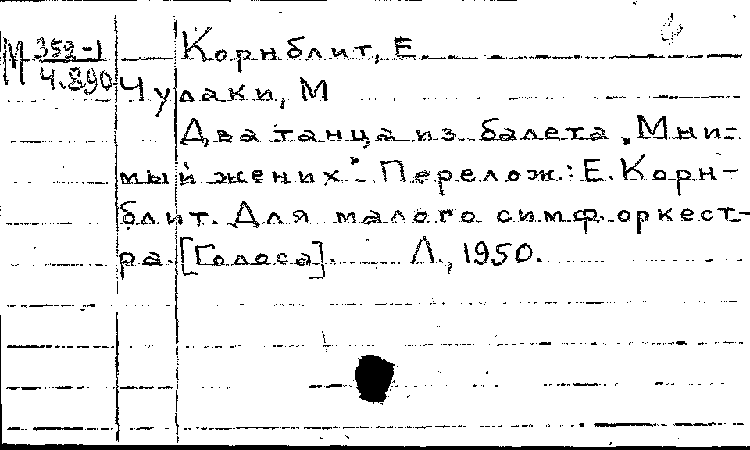 М 352-1
4.890
Корнблит, Е.
Чулаки, М
Два танца из балета „Мни-
мый жених". Перелож.: Е. Корн-
блит. Для малого симф. оркест-
ра. [Голоса]. Л., 1950.